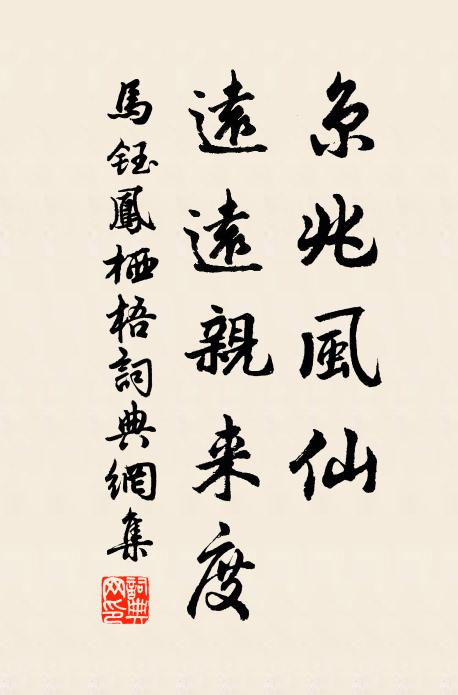 京兆風仙
遠遠親来度
馬鈺鳳栖梧詞典網集
詞典网印